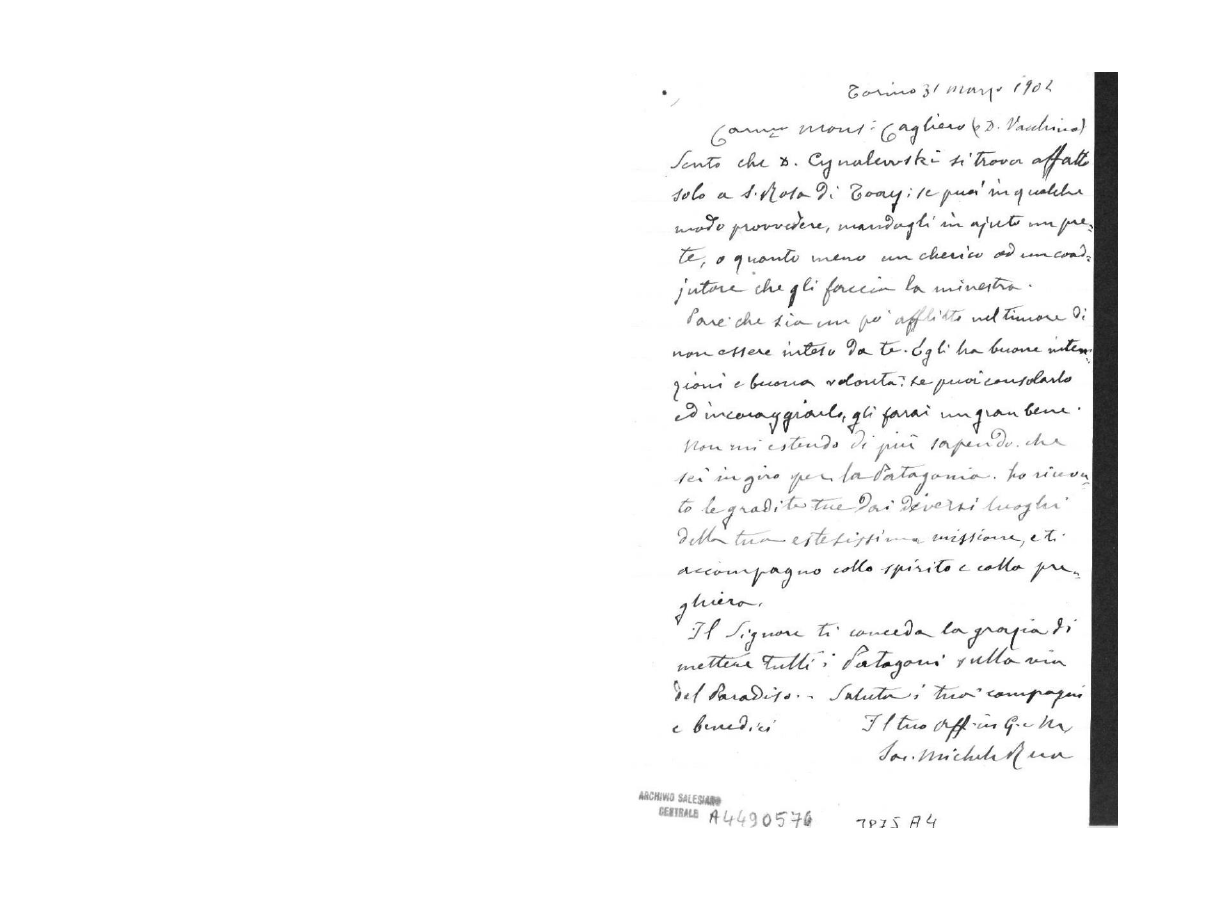 Torino 31 marzo 1902
Car.mo Mons: Cagliero (e D. Vacchina)
Sento che D. Cynalewski si trova affatto
solo a S. Rosa di Toay: se puoi in qualche
modo provvedere, mandagli in ajuto un pre=
te, o quanto meno un cherico od un coad=
jutore che gli faccia la minestra.
Pare che sia un po' afflitto nel timore di
non essere inteso da te. Egli ha buone inten=
zioni e buona volontà: se puoi consolarlo
ed incoraggiarlo, gli farai un gran bene.
Non mi estendo di più sapendo che
sei in giro per la Patagonia. ho ricevu=
to le gradite tue dai diversi luoghi
della tua estesissima missione, e ti
accompagno collo spirito e colla pre=
ghiera.
Il Signore ti conceda la grazia di
mettere tutti i Patagoni sulla via
del Paradiso. - Saluta i tuoi compagni
e benedici Il tuo Aff. in G. e M.
Sac. Michele Rua
ARCHIVIO SALESIANO
CENTRALE A4490576 3835 A4